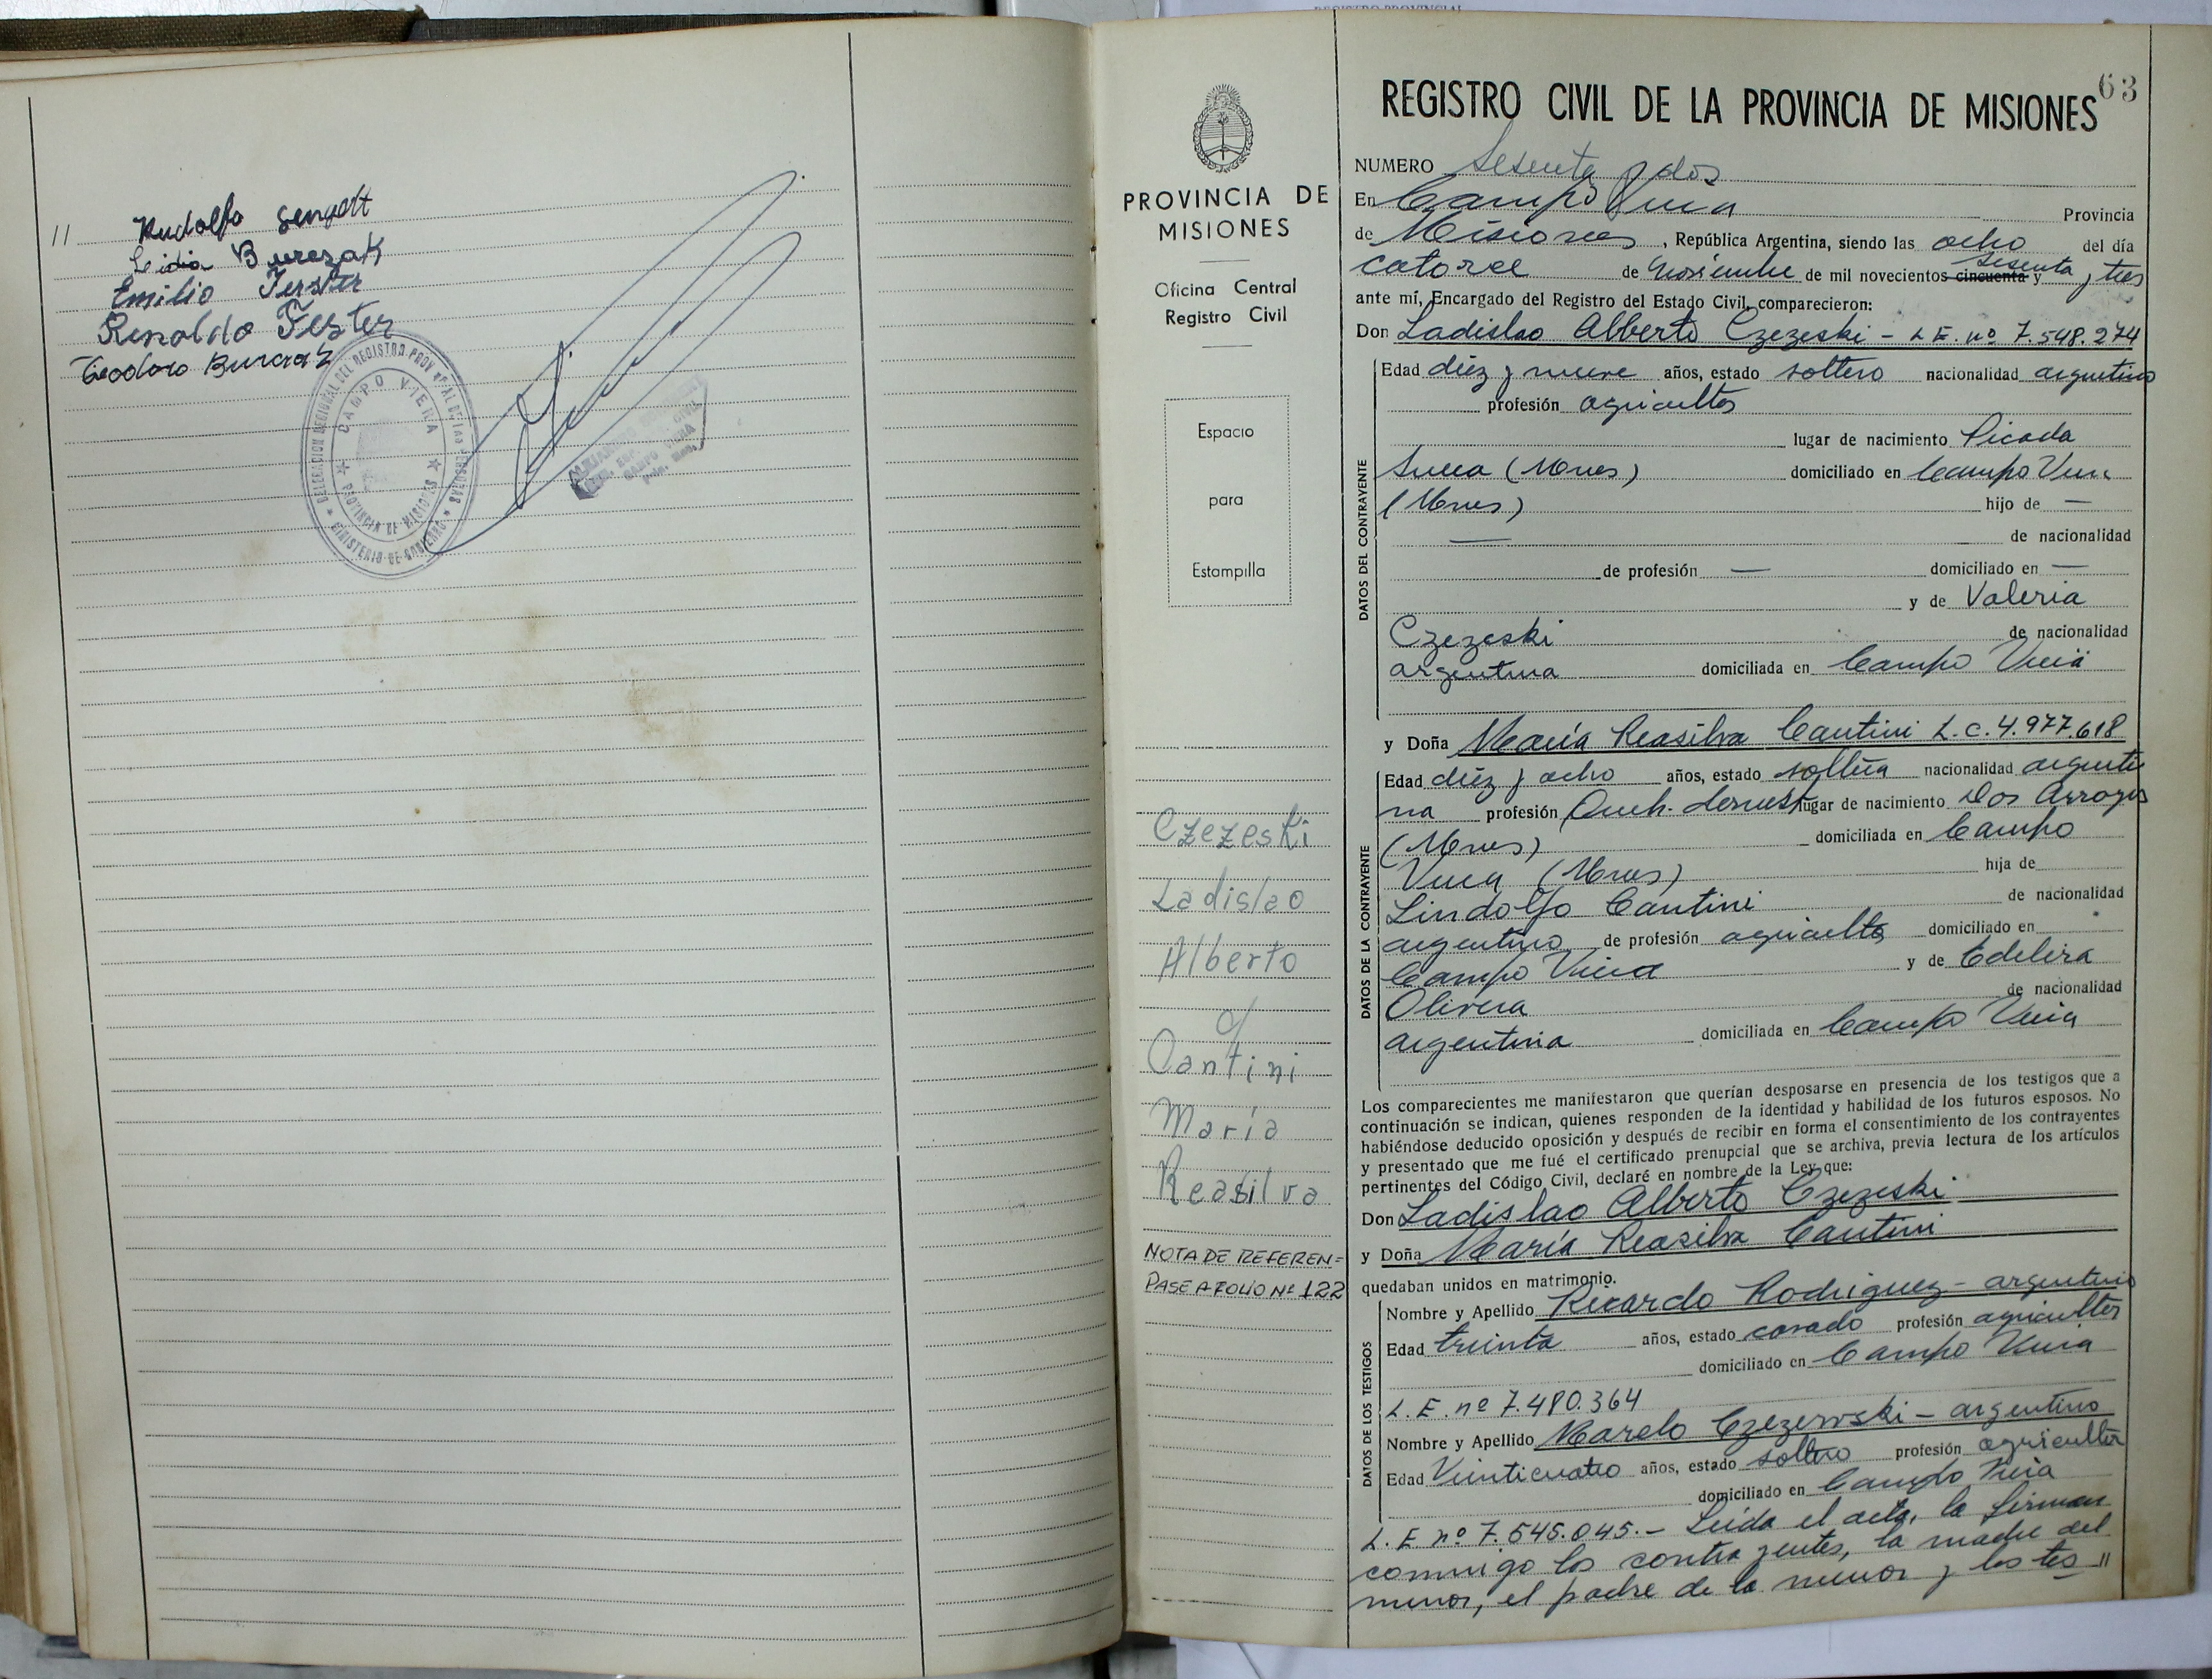 // Rudolfo Sengott
Lidia Burczak
Emilio Ferster
Renaldo Fester
Teodoro Burczak
DELEGACION REGIONAL DEL REGISTRO PROV DE LAS PERSONAS
CAMPO VIERA
PROVINCIA DE MISIONES
MINISTERIO DE GOBIERNO
CAMPO VIERA
PROVINCIA DE
MISIONES
Oficina Central
Registro Civil
Espacio
para
Estampilla
Czezeski
Ladislao
Alberto
c/
Cantini
María
Reasilva
NOTA DE REFEREN=
PASE A FOLIO Nº 122
63
REGISTRO CIVIL DE LA PROVINCIA DE MISIONES
NUMERO Sesenta y dos
En Campo Viera Provincia
de Misiones, República Argentina, siendo las ocho del día
catorce de noviembre de mil novecientos cincuenta y sesenta y tres
ante mí, Encargado del Registro del Estado Civil, comparecieron:
Don Ladislao Alberto Czezeski - L E. nº 7.548.274
DATOS DEL CONTRAYENTE
Edad diez y nueve años, estado soltero nacionalidad argentino
profesión agricultor
lugar de nacimiento Picada
Sueca (Mnes) domiciliado en Campo Viera
(Mnes) hijo de —
— de nacionalidad
de profesión — domiciliado en —
y de Valeria
Czezeski de nacionalidad
argentina domiciliada en Campo Viera
y Doña María Reasilva Cantini L.C. 4.977.618
DATOS DE LA CONTRAYENTE
Edad diez y ocho años, estado soltera nacionalidad argenti
na profesión Queh. domest lugar de nacimiento Dos Arroyos
(Mnes) domiciliada en Campo
Viera (Mnes) hija de
Lindolfo Cantini de nacionalidad
argentino de profesión agricultor domiciliado en
Campo Viera y de Edelira
Olivera de nacionalidad
argentina domiciliada en Campo Viera
Los comparecientes me manifestaron que querían desposarse en presencia de los testigos que a
continuación se indican, quienes responden de la identidad y habilidad de los futuros esposos. No
habiéndose deducido oposición y después de recibir en forma el consentimiento de los contrayentes
y presentado que me fué el certificado prenupcial que se archiva, previa lectura de los artículos
pertinentes del Código Civil, declaré en nombre de la Ley que:
Don Ladislao Alberto Czezeski
y Doña María Reasilva Cantini
quedaban unidos en matrimonio.
DATOS DE LOS TESTIGOS
Nombre y Apellido Ricardo Rodriguez - argentino
Edad treinta años, estado casado profesión agricultor
domiciliado en Campo Viera
L.E. nº 7.480.364
Nombre y Apellido Marelo Czezewski - argentino
Edad Veinticuatro años, estado soltero profesión agricultor
domiciliado en Campo Viera
L.E nº 7.545.045.- Leida el acta, la firman
conmigo los contrayentes, la madre del
menor, el padre de la menor y los tes //